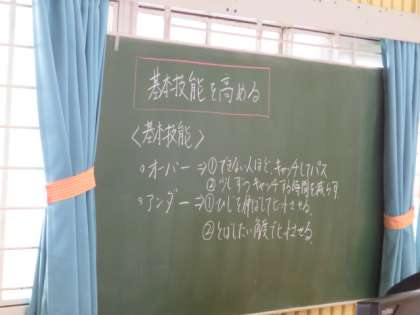 基本技能を高める
〈基本技能〉
○オーバー⇒①できない人ほど、キャッチしてパス
②少しずつキャッチする時間を減らす
○アンダー⇒①ひじを伸ばしてヒットさせる。
②とばしたい角度でヒットさせる。